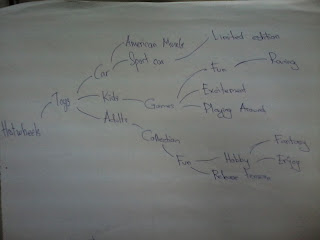 Hotwheels
Toys
Car
American Muscle
Sport car
Limited edition
Kids
Games
Fun
Racing
Excitement
Playing Around
Adults
Collection
Fun
Hobby
Fantasy
Enjoy
Release